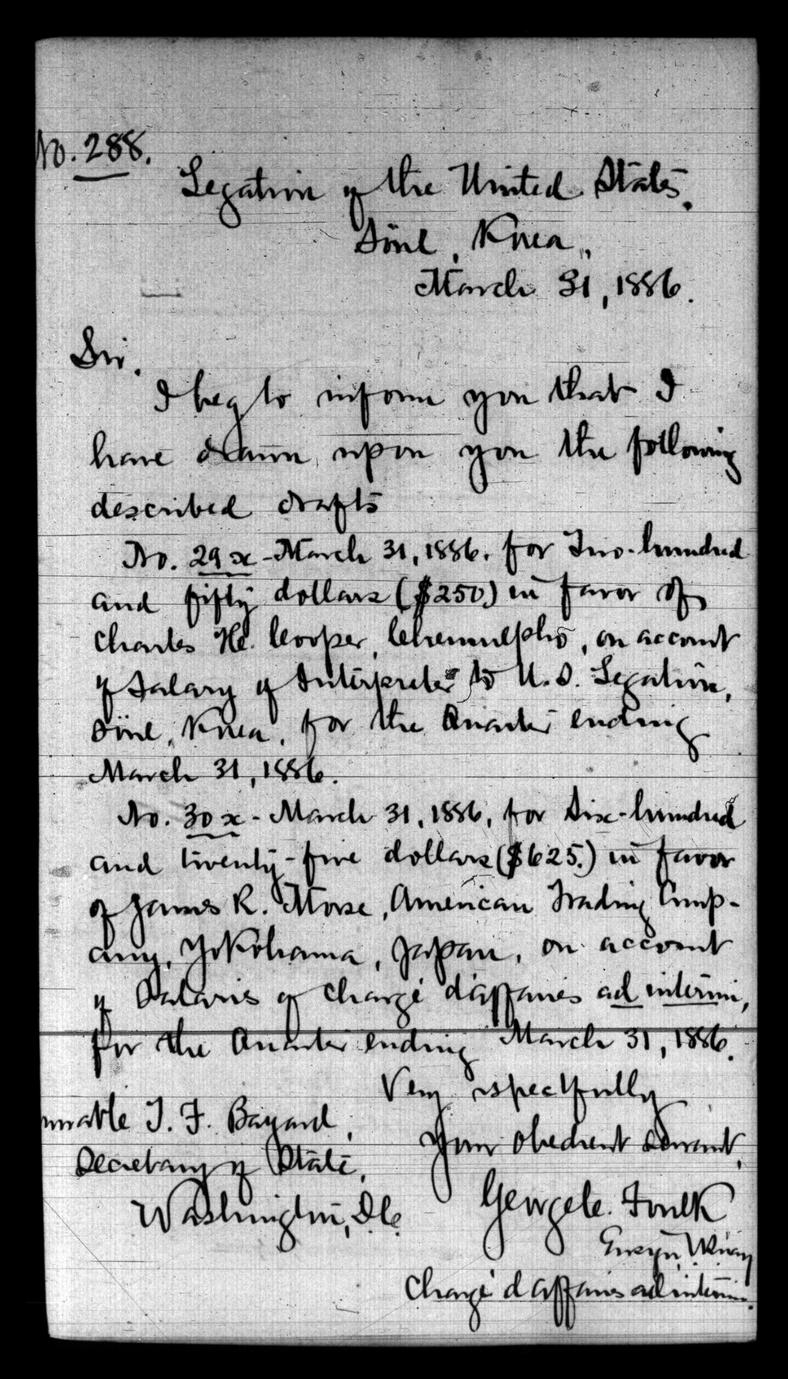 No. 288.
Legation of the United States.
Söul, Korea,
March 31, 1886.
Sir.
I beg to inform you that I
have drawn upon you the following
described drafts
No. 29x - March 31, 1886. for Two-hundred
and fifty dollars ($250) in favor of
Charles H. Cooper, Chemulpho, on account
of Salary of Interpreter to U.S. Legation,
Söul, Korea, for the Quarter ending
March 31, 1886.
No. 30x - March 31, 1886, for Six-hundred
and twenty-five dollars ($625.) in favor
of James R. Morse, American Trading Comp-
any, Yokohama, Japan, on account
of Salaries of Chargé d'affaires ad interim,
for the Quarter ending March 31, 1886.
Very respectfully
Your obedient servant,
George C. Foulk
Ensign, U.S. Navy
Chargé d'affaires ad interim.
orable T. F. Bayard,
Secretary of State,
Washington, D.C.